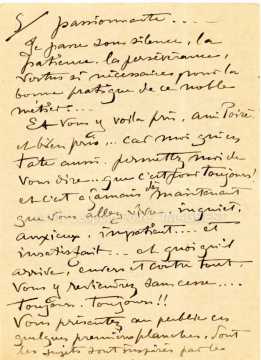 5/ passionnante.....
Je passe sous silence, la
patience, la persévérance,
vertus si nécessaires pour la
bonne pratique de ce noble
métier....
Et vous y voilà pris, ami Poiré
et bien pris... car moi qui en
tate aussi, permettez moi de
vous dire... que c'est pour toujours!
et c'est à jamais dès maintenant
que vous allez vivre inquiet,
anxieux, impatient.... et
insatisfait... et quoi qu'il
arrive, envers et contre tout
Vous y reviendrez sans cesse....
toujours, toujours!!
Vous présentez au public ces
quelques premières planches, dont
les sujets sont inspirés par les